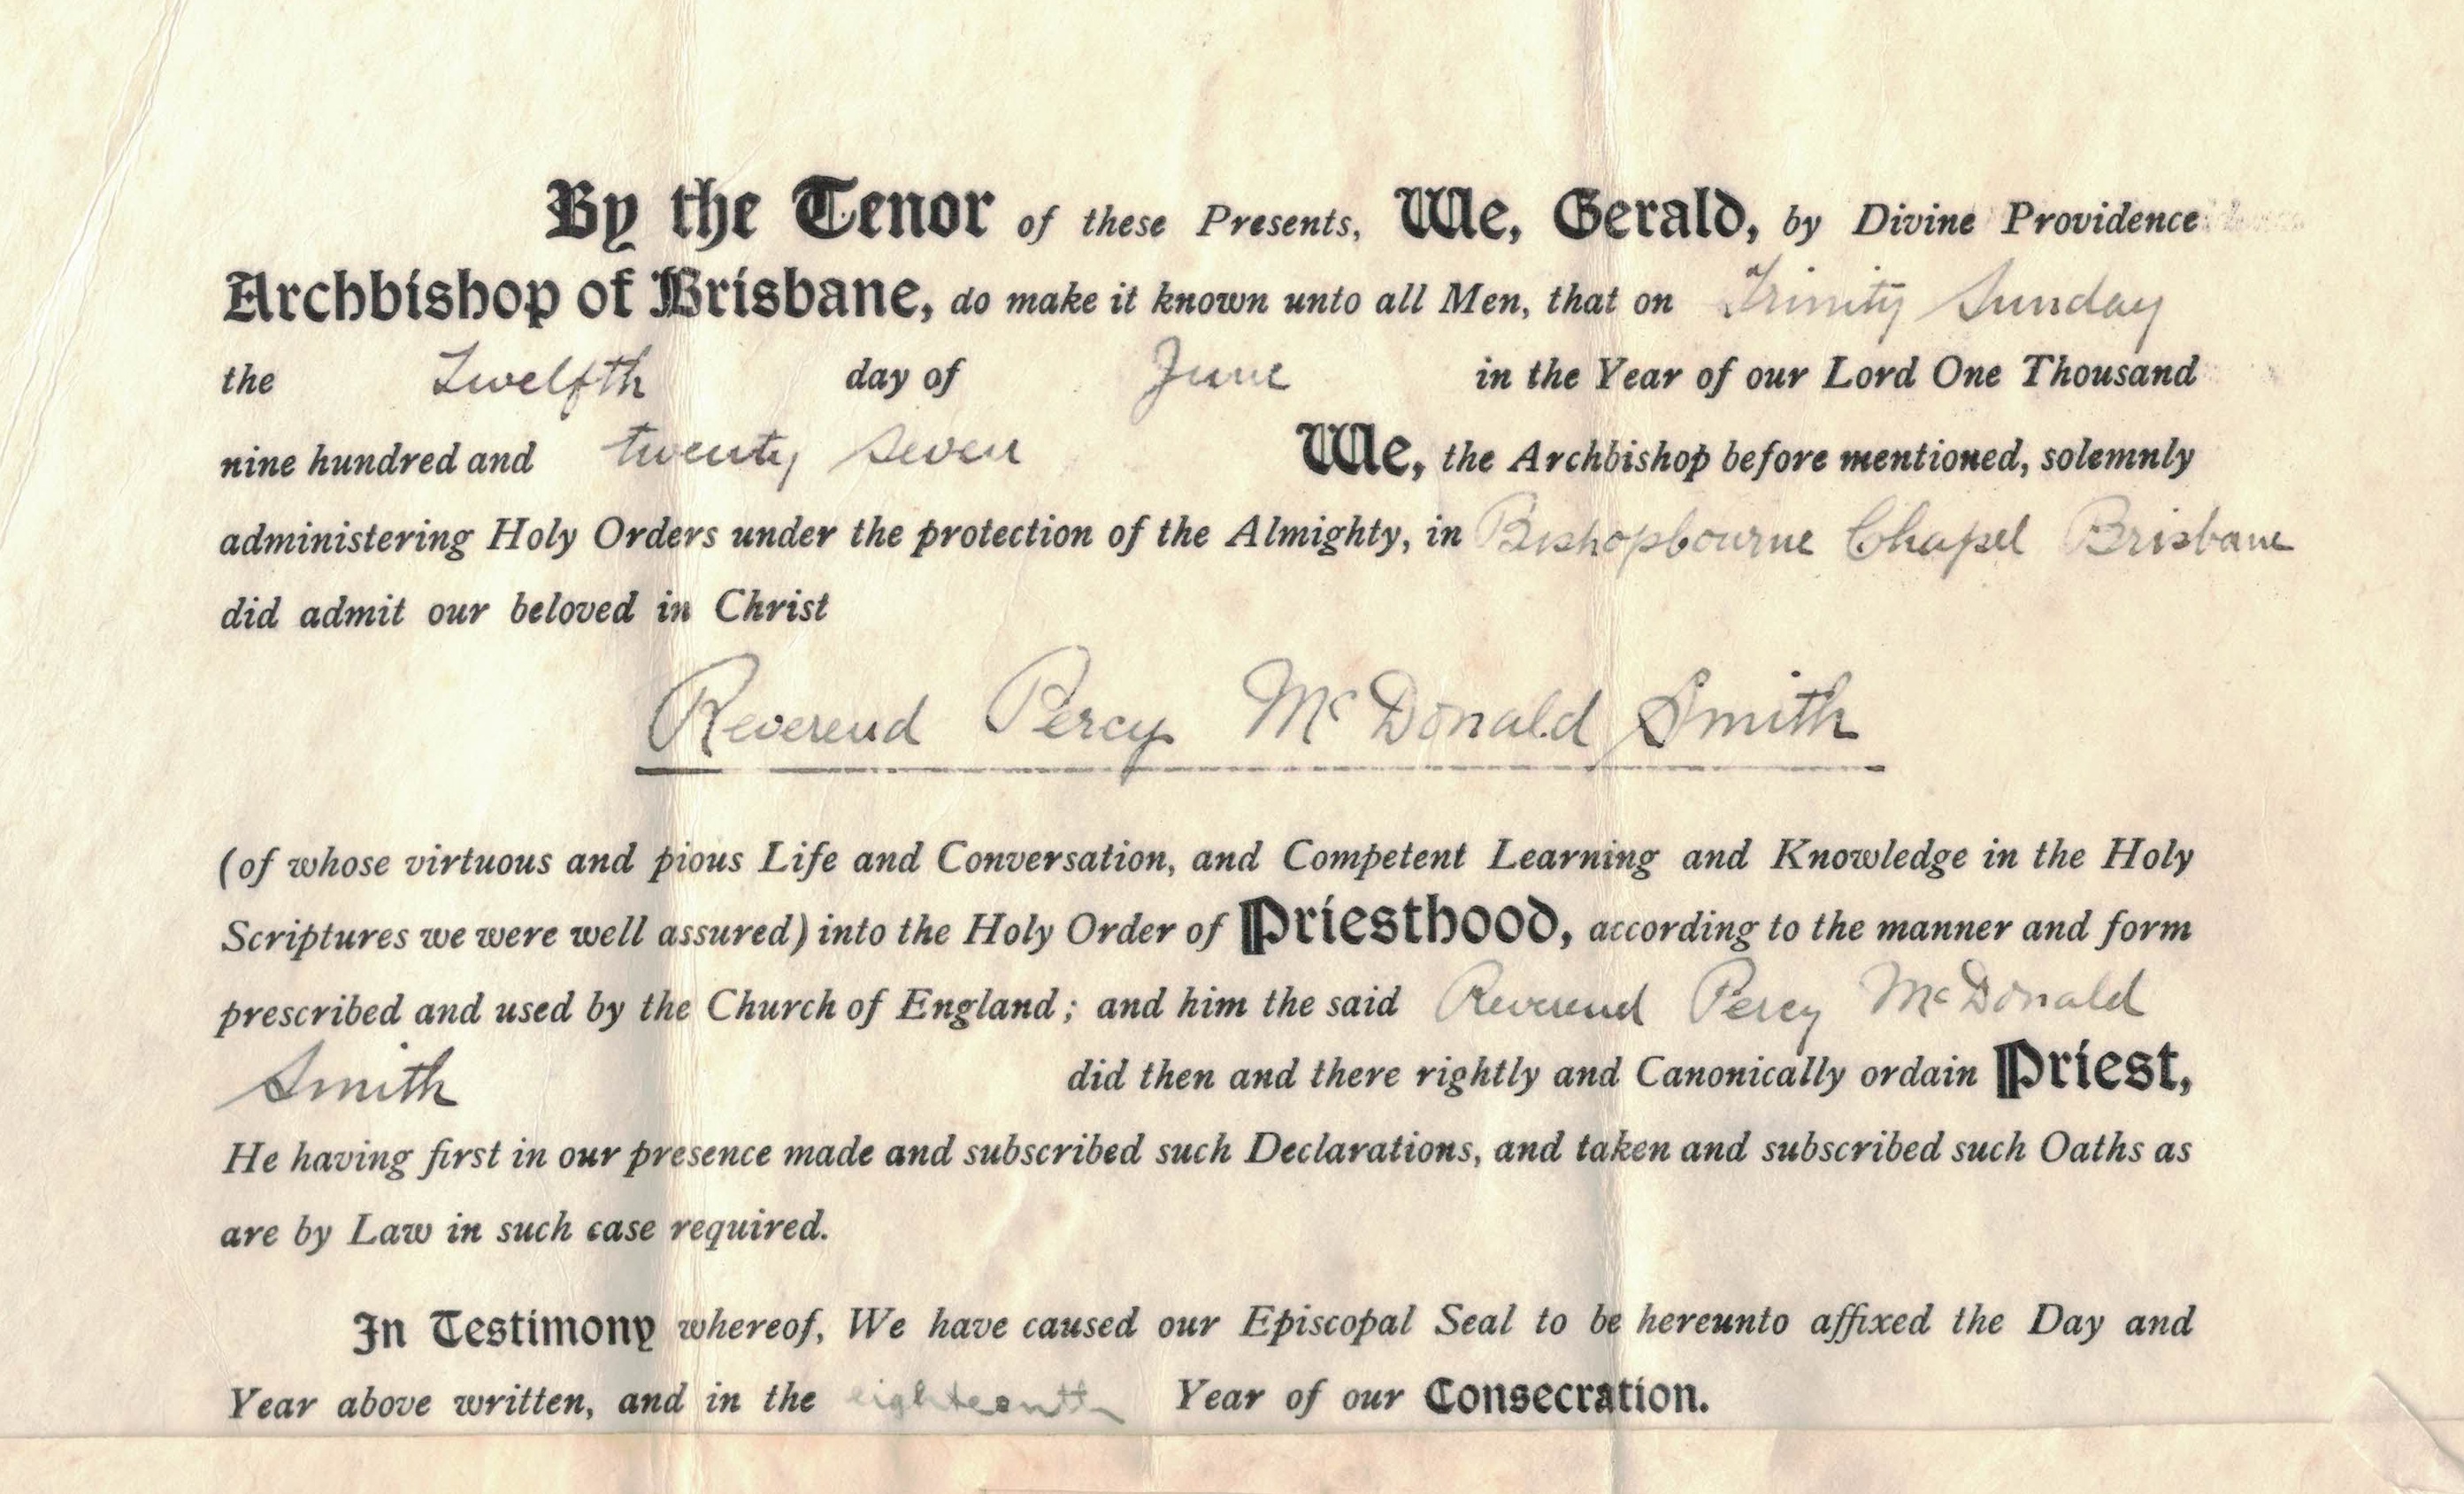 By the Tenor of these Presents, We, Gerald, by Divine Providence
Archbishop of Brisbane, do make it known unto all Men, that on Trinity Sunday
the Twelfth day of June in the Year of our Lord One Thousand
nine hundred and twenty seven We, the Archbishop before mentioned, solemnly
administering Holy Orders under the protection of the Almighty, in Bishopbourne Chapel Brisbane
did admit our beloved in Christ
Reverend Percy McDonald Smith
(of whose virtuous and pious Life and Conversation, and Competent Learning and Knowledge in the Holy
Scriptures we were well assured) into the Holy Order of Priesthood, according to the manner and form
prescribed and used by the Church of England; and him the said Reverend Percy McDonald
Smith did then and there rightly and Canonically ordain Priest,
He having first in our presence made and subscribed such Declarations, and taken and subscribed such Oaths as
are by Law in such case required.
In Testimony whereof, We have caused our Episcopal Seal to be hereunto affixed the Day and
Year above written, and in the eighteenth Year of our Consecration.